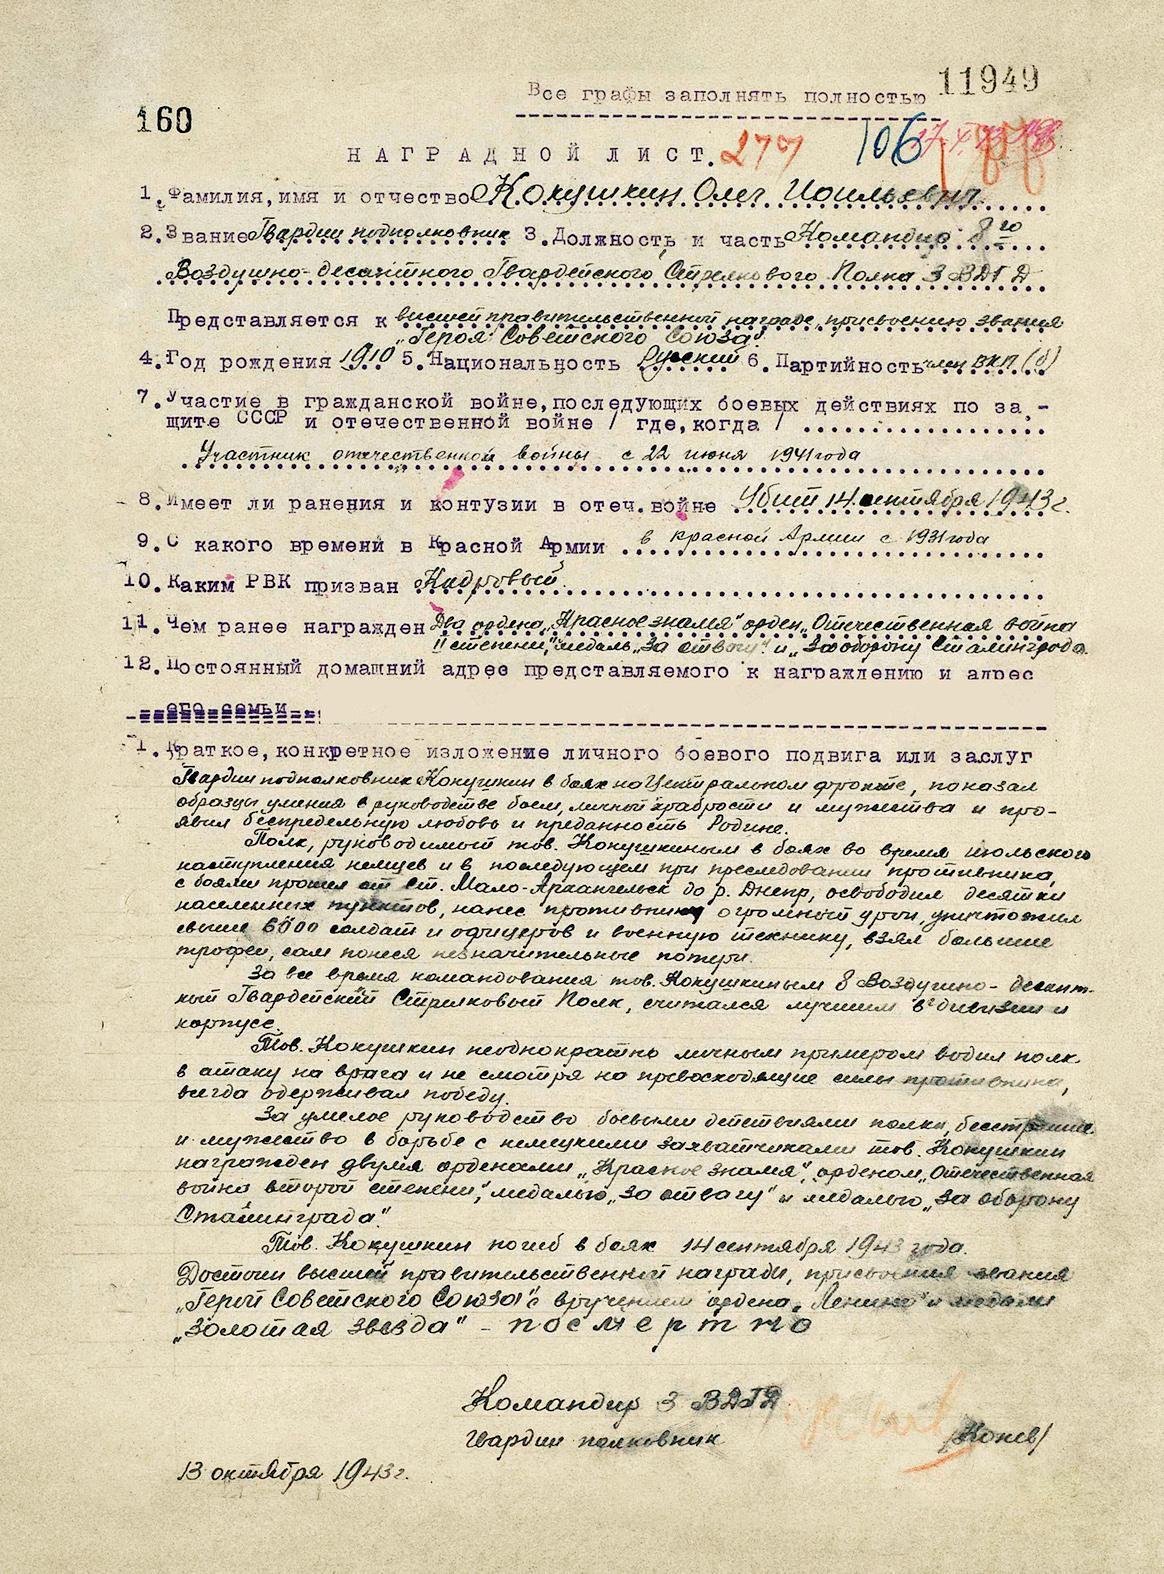 11949
Все графы заполнять полностью
160
НАГРАДНОЙ ЛИСТ. 277 106
1. Фамилия, имя и отчество Кокушкин Олег Иоильевич
2. Звание Гвардии подполковник 3. Должность и часть Командир 8го
Воздушно-десантного Гвардейского Стрелкового Полка 3 ВДГД
Представляется к высшей правительственной награде, присвоению звания
„Героя Советского Союза"
4. Год рождения 1910 5. Национальность Русский 6. Партийность член ВКП(б)
7. Участие в гражданской войне, последующих боевых действиях по за-
щите СССР и отечественной войне / где, когда /
Участник отечественной войны с 22 июня 1941 года
8. Имеет ли ранения и контузии в отеч. войне Убит 14 сентября 1943 г.
9. С какого времени в Красной Армии в Красной Армии с 1931 года
10. Каким РВК призван Кадровый
11. Чем ранее награжден Два ордена „Красное знамя" орден „Отечественная война
II степени", медаль „За отвагу" и „За оборону Сталинграда.
12. Постоянный домашний адрес представляемого к награждению и адрес
его семьи
1. Краткое, конкретное изложение личного боевого подвига или заслуг
Гвардии подполковник Кокушкин в боях на Центральном фронте, показал
образцы умения в руководстве боем, личной храбрости и мужества и про-
явил беспредельную любовь и преданность Родине.
Полк, руководимый тов. Кокушкиным в боях во время июльского
наступления немцев и в последующем при преследовании противника,
с боями прошел от ст. Мало-Архангельск до р. Днепр, освободил десятки
населенных пунктов, нанес противнику огромный урон, уничтожил
свыше 6000 солдат и офицеров и военную технику, взял большие
трофеи, сам понеся незначительные потери.
За все время командования тов. Кокушкиным 8 Воздушно-десант-
ный Гвардейский Стрелковый Полк, считался лучшим в дивизии и
корпусе.
Тов. Кокушкин неоднократно личным примером водил полк
в атаку на врага и не смотря на превосходящие силы противника,
всегда одерживал победу.
За умелое руководство боевыми действиями полка, бесстрашие
и мужество в борьбе с немецкими захватчиками тов. Кокушкин
награжден двумя орденами „Красное знамя", орденом „Отечественная
война второй степени", медалью „За отвагу" и медалью „За оборону
Сталинграда."
Тов. Кокушкин погиб в боях 14 сентября 1943 года.
Достоин высшей правительственной награды, присвоения звания
„Герой Советского Союза" с вручением ордена „Ленина" и медали
„Золотая звезда" - посмертно
Командир 3 ВДГД
гвардии полковник /Конев/
13 октября 1943 г.